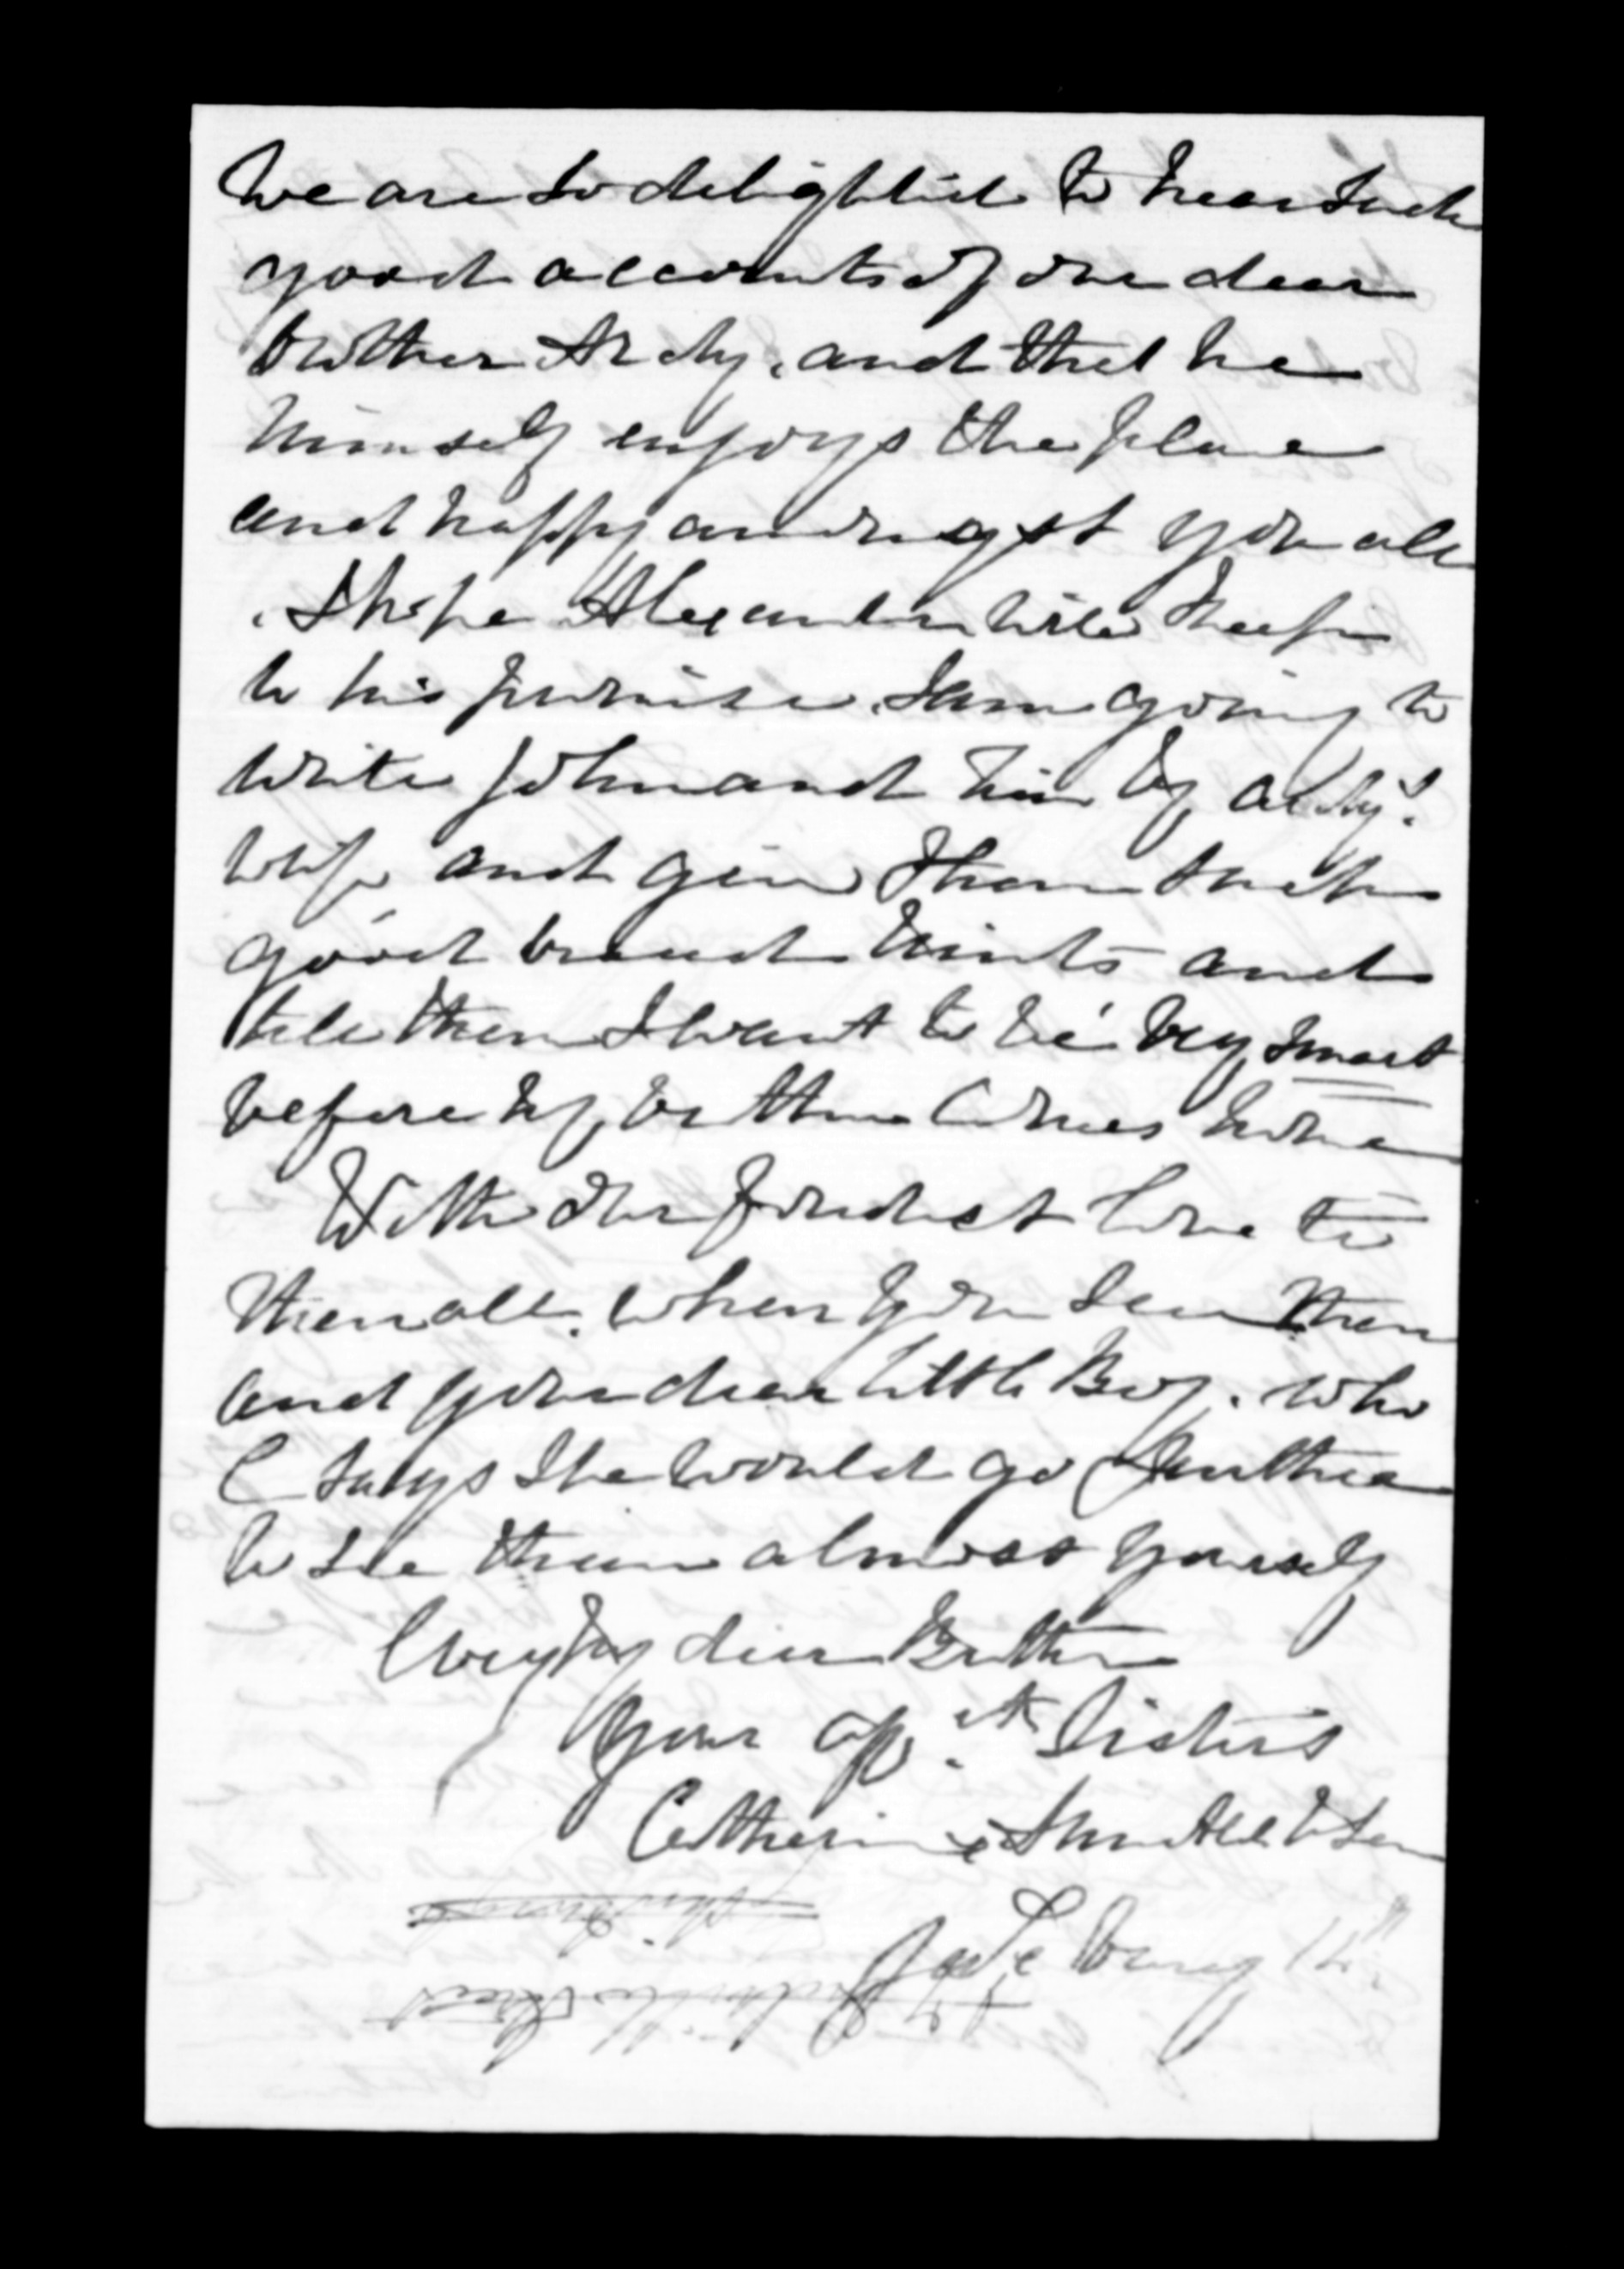 We are so delighted to hear such
good accounts of our dear
brother Archy, and that he
himself enjoys the place
and happy amongst you all
. I hope Alexander will keep
to his promise. I am going to
write John and him by Archy's
wife and give them such
good broad hints and
tell them I want to be very smart
before my brother comes home
With our fondest love to
them all. when you see them
and your dear little Boy. who
C says she would go further
to see than almost yourself
Ever my dear Brother
Your aff.ate Sisters
Catherine & Ann